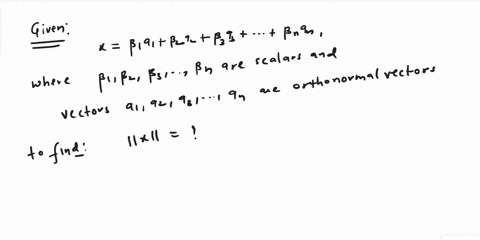 Given:
x = β₁a₁ + β₂a₂ + β₃a₃ + ... + βₙaₙ,
where β₁, β₂, β₃, ..., βₙ are scalars and
vectors a₁, a₂, a₃, ..., aₙ are orthonormal vectors
to find: ||x|| = ?